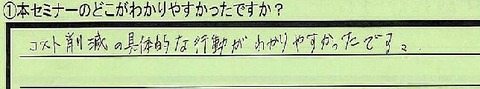 ①本セミナーのどこがわかりやすかったですか？
コスト削減の具体的な行動がわかりやすかったです。